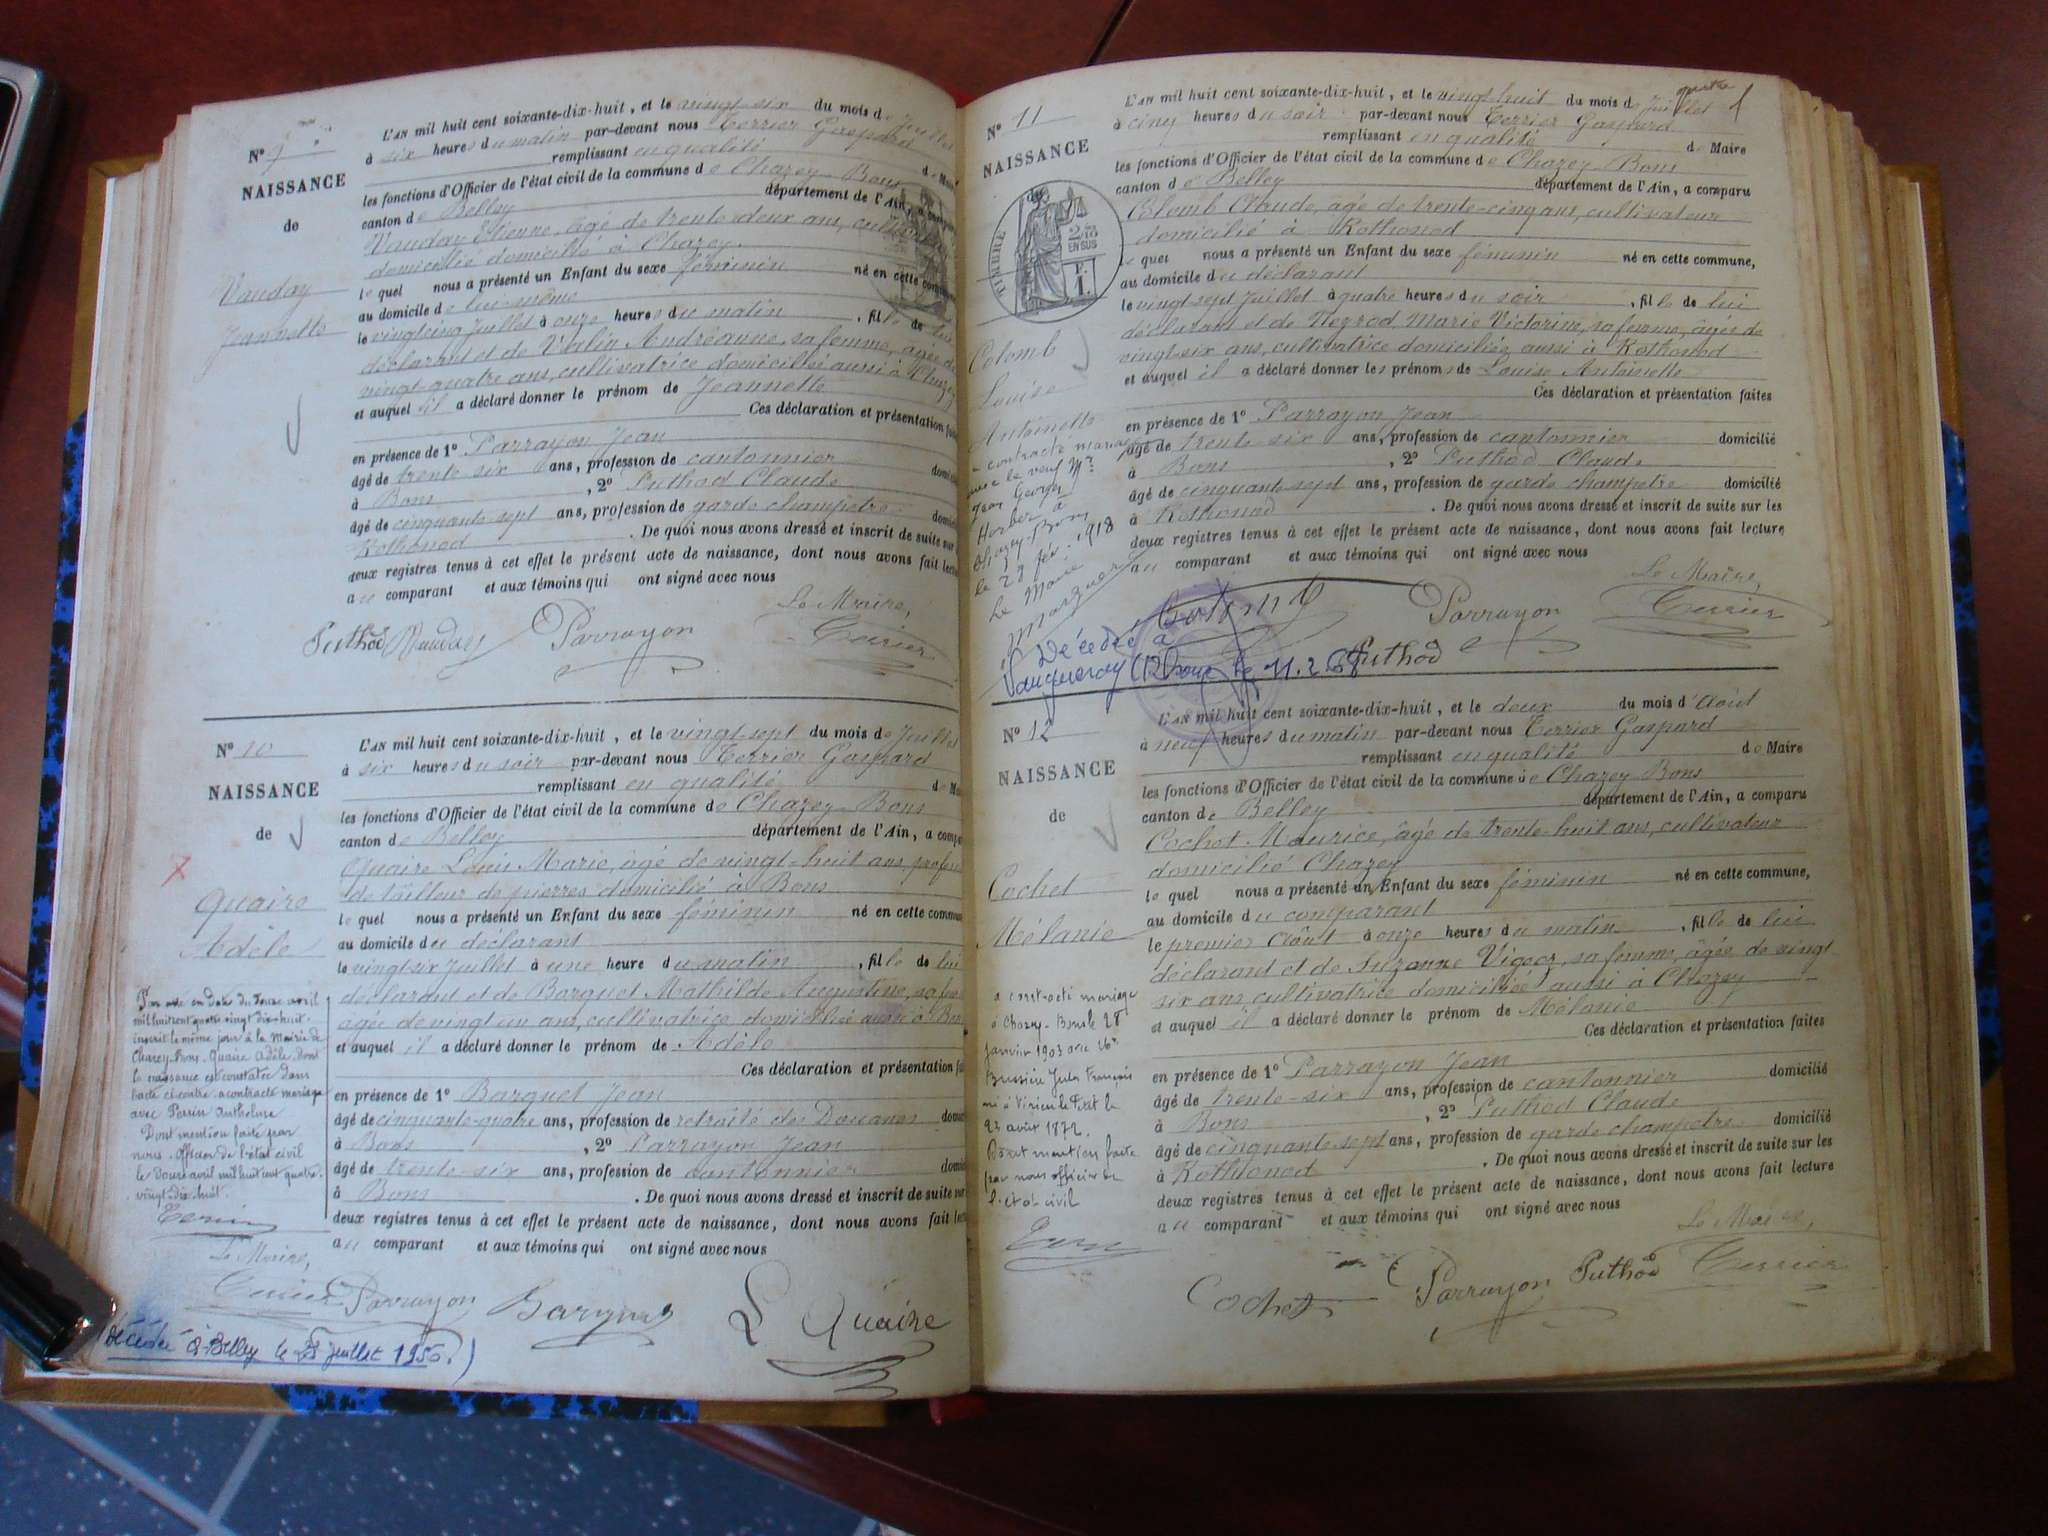 N° 9
NAISSANCE
de
Vauday
Jeannette
L'AN mil huit cent soixante-dix-huit, et le vingt-six du mois de Juillet
à six heures du matin par-devant nous Terrier Gaspard
remplissant en qualité de Maire
les fonctions d'Officier de l'état civil de la commune de Chazey-Bons
canton de Belley département de l'Ain, a comparu
Vauday Etienne, âgé de trente-deux ans,
domicilié domicilié à Chazey
lequel nous a présenté un Enfant du sexe féminin né en cette commune
au domicile de lui-même
le vingt-cinq Juillet à onze heures du matin, fille de lui
déclarant et de Vialin Andréanne, sa femme, âgée de
vingt-quatre ans, cultivatrice domiciliée aussi à Chazey
et auquel il a déclaré donner le prénom de Jeannette
Ces déclaration et présentation
en présence de 1° Parrayon Jean
âgé de trente-six ans, profession de cantonnier
à Bons, 2° Puthod Claude
âgé de cinquante-sept ans, profession de garde champêtre
Rothonod. De quoi nous avons dressé et inscrit de suite sur
deux registres tenus à cet effet le présent acte de naissance, dont nous avons fait
au comparant et aux témoins qui ont signé avec nous
Le Maire,
Puthod Vauday Parrayon Terrier
N° 10
NAISSANCE
de
Quaire
Adèle
L'AN mil huit cent soixante-dix-huit, et le vingt-sept du mois de Juillet
à six heures du soir par-devant nous Terrier Gaspard
remplissant en qualité de
les fonctions d'Officier de l'état civil de la commune de Chazey-Bons
canton de Belley département de l'Ain, a
Quaire Louis Marie, âgé de vingt-huit ans,
de tailleur de pierres domicilié à Bons
lequel nous a présenté un Enfant du sexe féminin né en cette
au domicile du déclarant
le vingt-six Juillet à une heure du matin, fille de lui
déclarant et de Barquet Mathilde Augustine,
âgée de vingt un ans, cultivatrice domiciliée aussi à Bons
et auquel il a déclaré donner le prénom de Adèle
Ces déclaration et présentation
en présence de 1° Barquet Jean
âgé de cinquante-quatre ans, profession de retraité des Douanes
à Bons, 2° Parrayon Jean
âgé de trente-six ans, profession de cantonnier
à Bons. De quoi nous avons dressé et inscrit de suite sur
deux registres tenus à cet effet le présent acte de naissance, dont nous avons fait
au comparant et aux témoins qui ont signé avec nous
Par acte en date du douze avril
mil huit cent quatre vingt dix-huit
inscrit le même jour à la Mairie de
Chazey-Bons. Quaire Adèle dont
la naissance est constatée dans
l'acte ci-contre a contracté mariage
avec Perrin Anthelme
Dont mention faite par
nous officier de l'état civil
le douze avril mil huit cent quatre
vingt-dix-huit.
Le Maire,
Terrier Parrayon Barquet L Quaire
Décédée à Belley le 25 juillet 1956.)
N° 11
NAISSANCE
TIMBRE
2/10
EN SUS
F.
1.
Colomb
Louise
Antoinette
L'AN mil huit cent soixante-dix-huit, et le vingt-huit du mois de Juillet
à cinq heures du soir par-devant nous Terrier Gaspard
remplissant en qualité de Maire
les fonctions d'Officier de l'état civil de la commune de Chazey-Bons
canton de Belley département de l'Ain, a comparu
Colomb Claude, âgé de trente-cinq ans, cultivateur
domicilié à Rothonod
lequel nous a présenté un Enfant du sexe féminin né en cette commune,
au domicile du déclarant
le vingt-sept Juillet à quatre heures du soir, fille de lui
déclarant et de Neyrod Marie Victorine, sa femme, âgée de
vingt-six ans, cultivatrice domiciliée aussi à Rothonod
et auquel il a déclaré donner les prénoms de Louise Antoinette
Ces déclaration et présentation faites
en présence de 1° Parrayon Jean
âgé de trente-six ans, profession de cantonnier domicilié
à Bons, 2° Puthod Claude
âgé de cinquante-sept ans, profession de garde champêtre domicilié
à Rothonod. De quoi nous avons dressé et inscrit de suite sur les
deux registres tenus à cet effet le présent acte de naissance, dont nous avons fait lecture
au comparant et aux témoins qui ont signé avec nous
contracté mariage
Jean Georges
à
Chazey-Bons
le 28 fév. 1918
Le Maire
Le Maire,
Parrayon Terrier
Puthod
Décédée à
Vaugneray (Rhône) le 11.2.68
N° 12
NAISSANCE
de
Cochet
Mélanie
L'AN mil huit cent soixante-dix-huit, et le deux du mois d'Août
à neuf heures du matin par-devant nous Terrier Gaspard
remplissant en qualité de Maire
les fonctions d'Officier de l'état civil de la commune de Chazey-Bons
canton de Belley département de l'Ain, a comparu
Cochet Maurice, âgé de trente-huit ans, cultivateur
domicilié Chazey
lequel nous a présenté un Enfant du sexe féminin né en cette commune,
au domicile du comparant
le premier Août à onze heures du matin, fille de lui
déclarant et de Suzanne, sa femme, âgée de vingt
six ans cultivatrice domiciliée aussi à Chazey
et auquel il a déclaré donner le prénom de Mélanie
Ces déclaration et présentation faites
en présence de 1° Parrayon Jean
âgé de trente-six ans, profession de cantonnier domicilié
à Bons, 2° Puthod Claude
âgé de cinquante-sept ans, profession de garde champêtre domicilié
à Rothonod. De quoi nous avons dressé et inscrit de suite sur les
deux registres tenus à cet effet le présent acte de naissance, dont nous avons fait lecture
au comparant et aux témoins qui ont signé avec nous
a contracté mariage
à Chazey-Bons le 28
janvier 1903 avec
Jules François
né à Virieu le Petit le
23 août 1872.
Dont mention faite
par nous officier de
l'état civil
Le Maire,
Cochet Parrayon Puthod Terrier